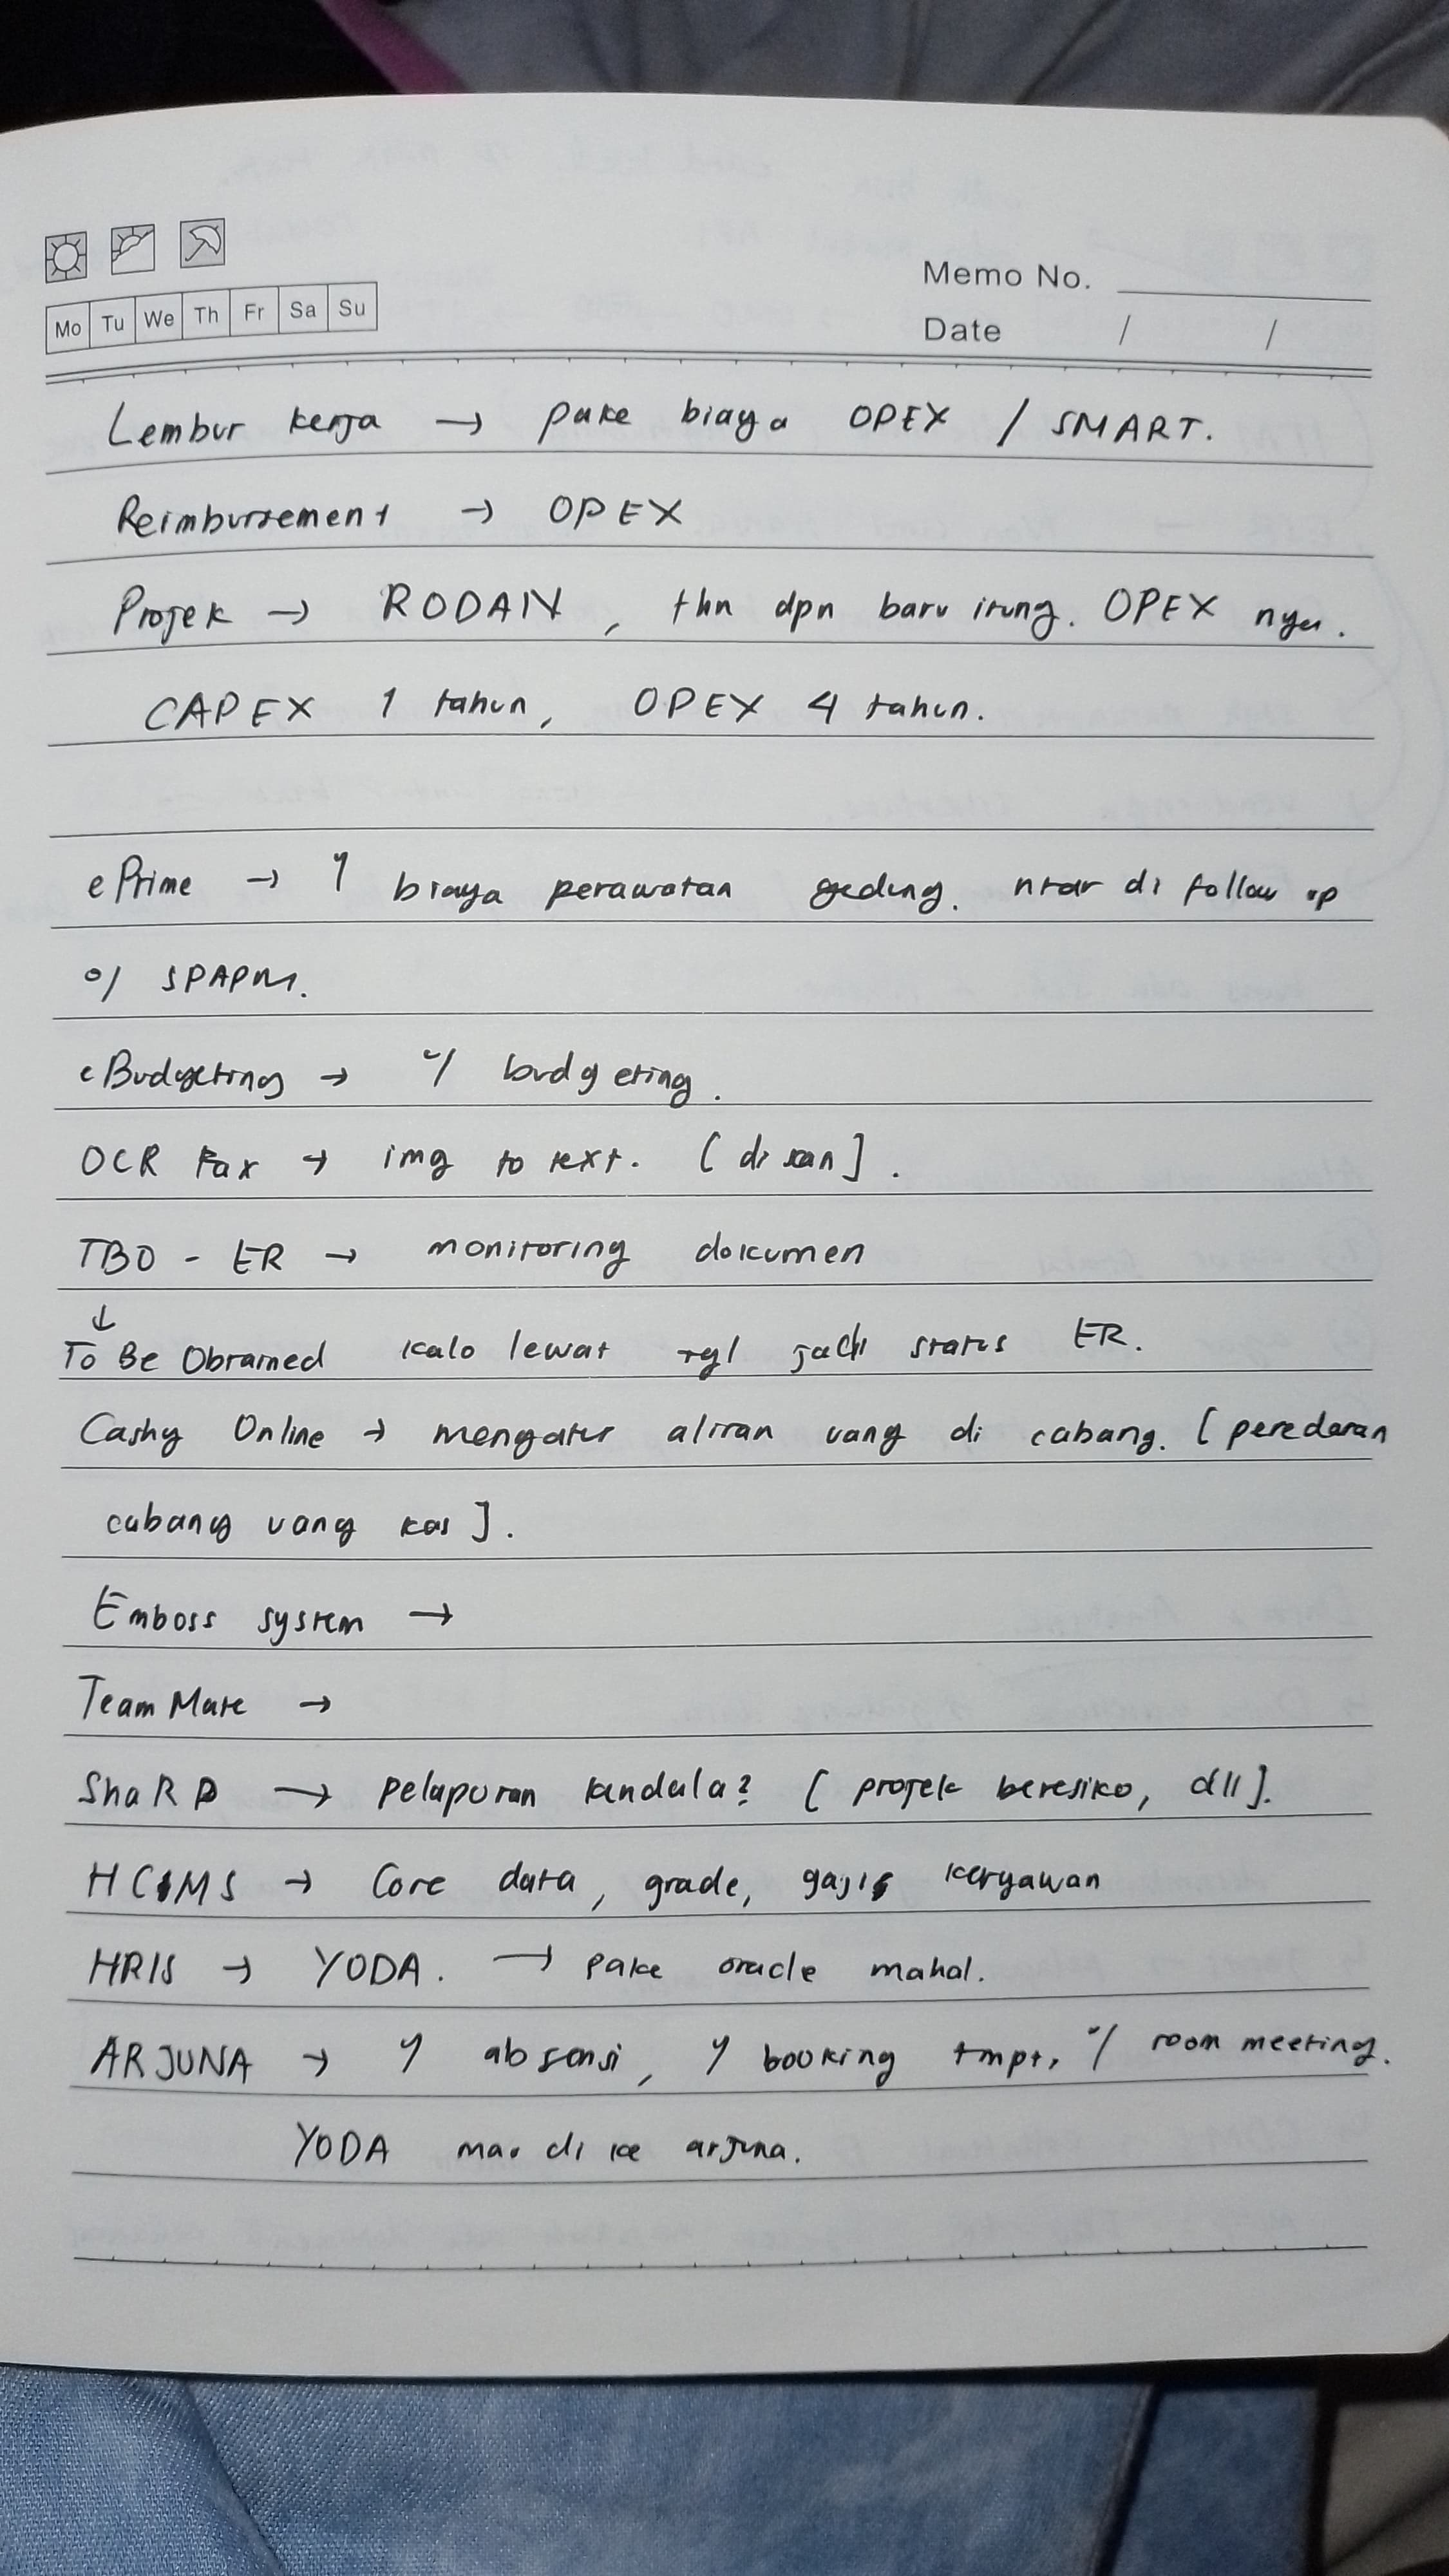 Memo No.
Mo Tu We Th Fr Sa Su
Date / /
Lembur kerja → pake biaya OPEX / SMART.
Reimbursement → OPEX
Projek → RODAN, thn dpn baru itung. OPEX nya.
CAPEX 1 tahun, OPEX 4 tahun.
ePrime → u/ biaya perawatan gedung. ntar di follow up
o/ SPAPM.
eBudgeting → u/ budgeting.
OCR Fax → img to text. [di scan].
TBO - ER → monitoring dokumen
↓
To Be Obtained kalo lewat tgl jadi status ER.
Cashy Online → mengatur aliran uang di cabang. [peredaran
cabang uang kas].
Emboss system →
Team Mate →
ShaRP → pelaporan kendala? [projek beresiko, dll].
HCMS → Core data, grade, gaji karyawan
HRIS → YODA. → pake oracle mahal.
ARJUNA → u/ absensi, u/ booking tmpt, u/ room meeting.
YODA mau di ke arjuna.